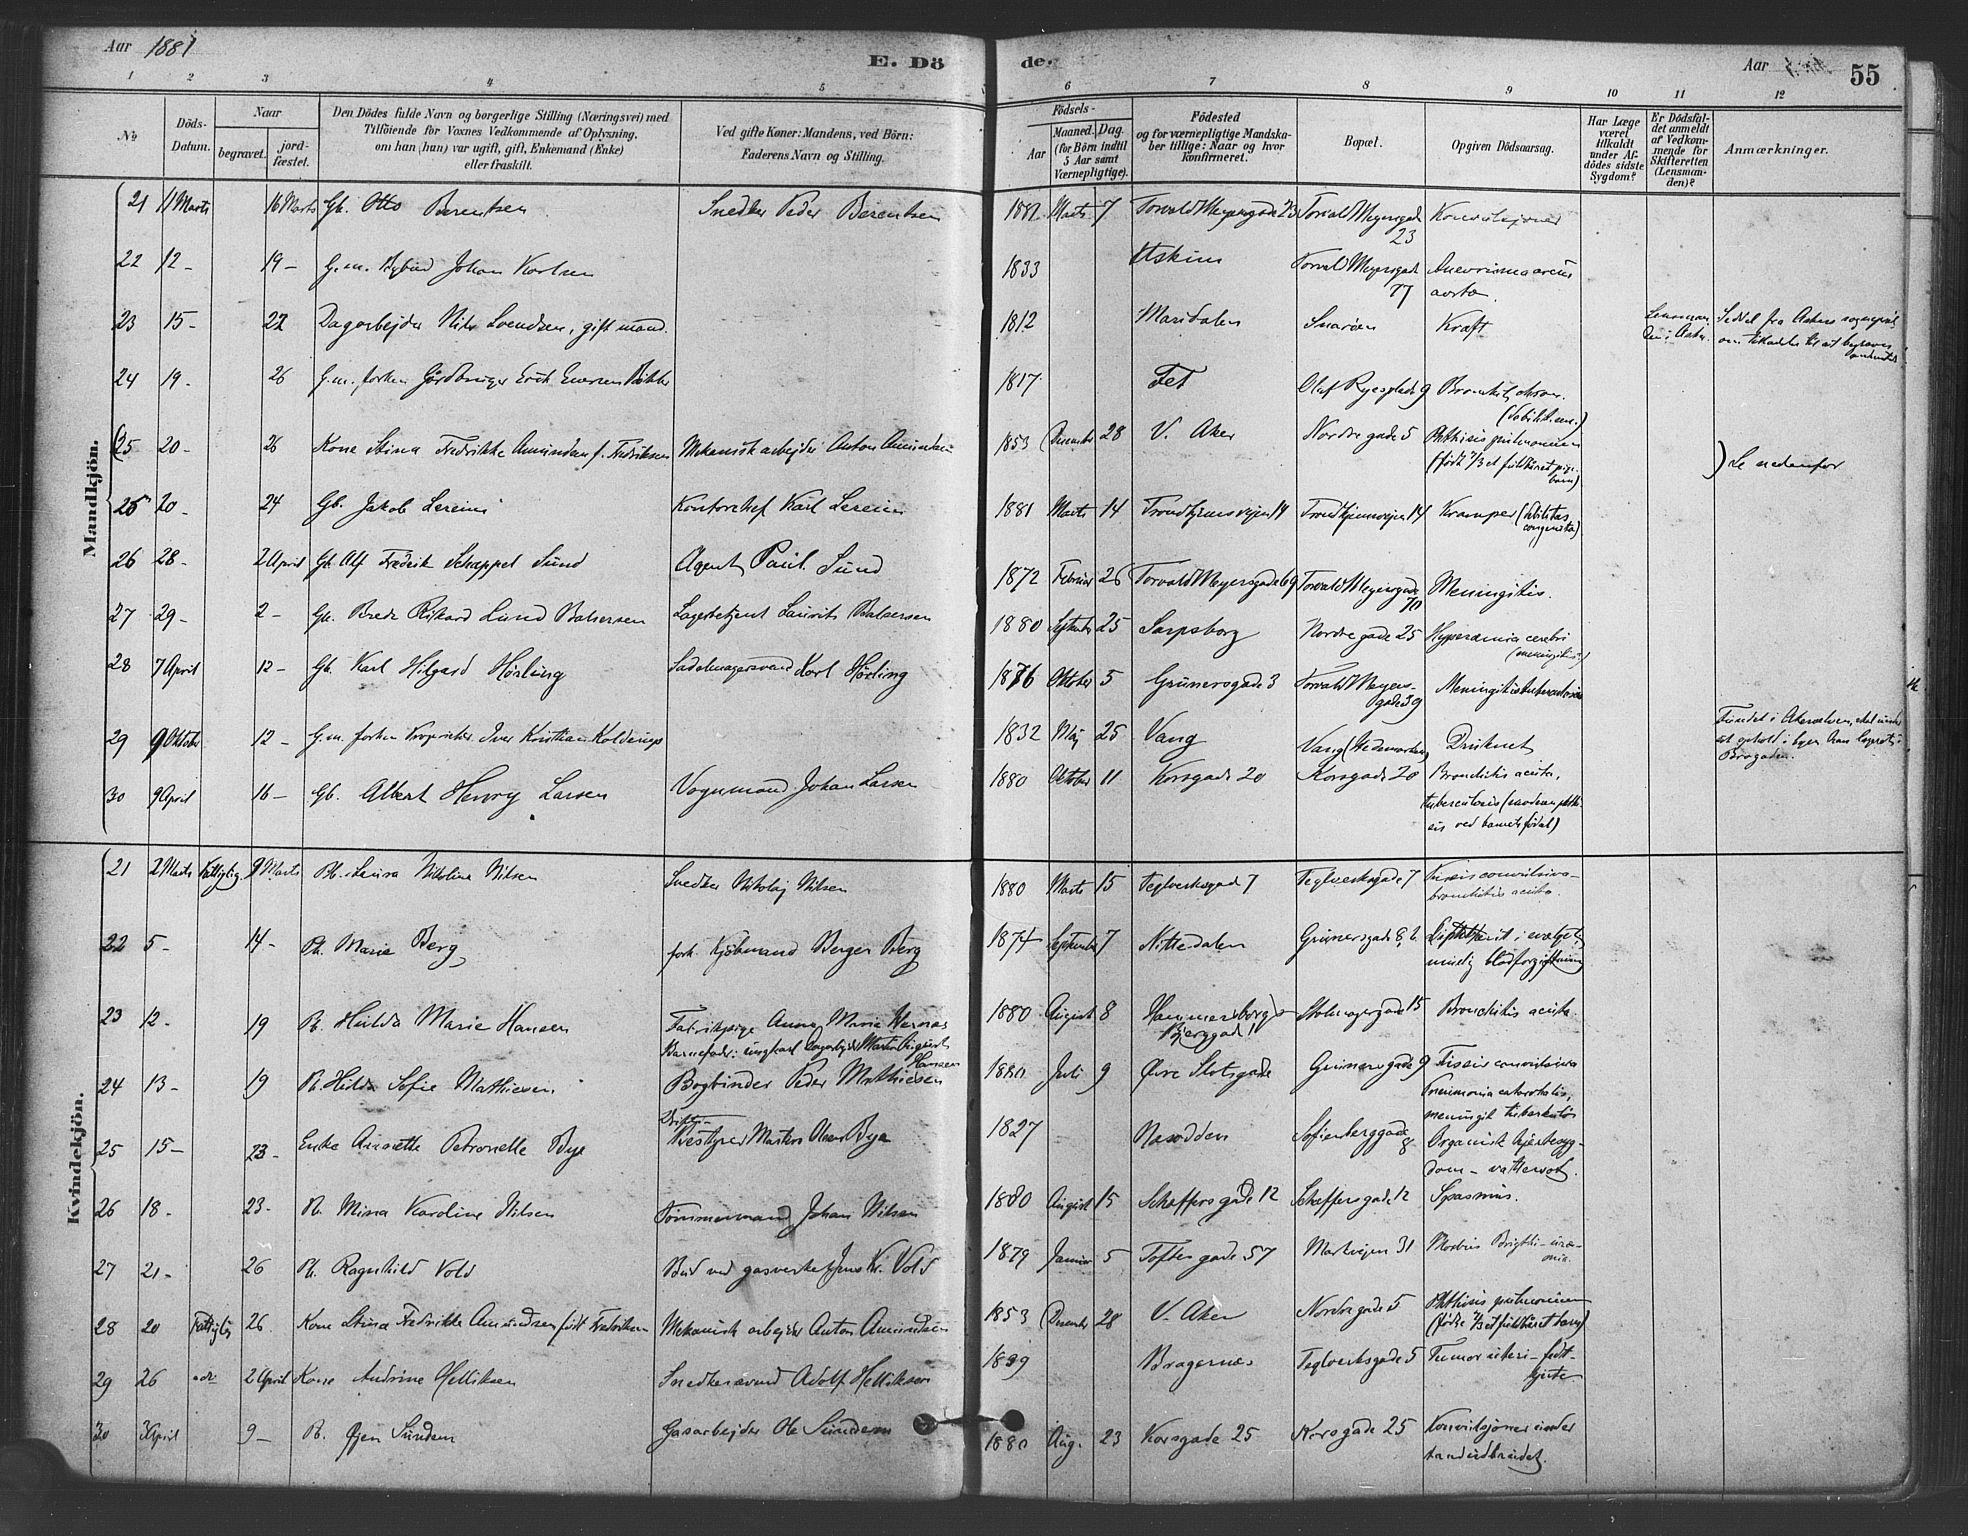 Aar 1881 E. Dö de. Aar 55
1 2 3 4 5 6 7 8 9 10 11 12
№
Döds-Datum.
Naar
begravet. jord-fæstet.
Den Dödes fulde Navn og borgerlige Stilling (Næringsvei) med
Tilföiende for Voxnes Vedkommende af Oplysning,
om han (hun) var ugift, gift, Enkemand (Enke)
eller fraskilt.
Ved gifte Koner: Mandens, ved Börn:
Faderens Navn og Stilling.
Födsels-
Aar Maaned. Dag.
(for Börn indtil
5 Aar samt
Værnepligtige).
Födested
og for værnepligtige Mandska-
ber tillige: Naar og hvor
konfirmeret.
Bopæl.
Opgiven Dödsaarsag.
Har Læge
været
tilkaldt
under Af-
dödes sidste
Sygdom?
Er Dödsfal-
det anmeldt
af Vedkom-
mende for
Skifteretten
(Lensman-
den)?
Anmærkninger.
Mandkjön.
21 11 Marts 16 Marts Gb. Otto Berentsen Snedker Peder Berentsen 1881 Marts 7 Torvald Meyersgade 23 Torvald Meyersgade 23 Konvulsjoner
22 12 - 19 - G.m. Johan Karlsen 1833 Askim Torvald Meyersgade 77 aorta.
23 15 - 22 Dagarbejder Nils Svendsen, gift mand. 1812 Maridalen Snarøen Kræft
24 19 - 26 G.m. forhen Gårdbruger 1817 Fet Olaf Ryesplads 9
(25 20 - 26 Kone Stina Fredrikke Amundsen f. Fredriksen Mekanisk arbejder Anton Amundsen 1853 December 28 V. Aker Nordre gade 5 Phthisis pulmonum ) Se nedenfor
25 20 - 24 Gb. Jakob Kontorchef Karl 1881 Marts 14 Trondhjemsvejen 14 Trondhjemsvejen 14 Kramper (debilitas congenita)
26 28 - 2 April Gb. Alf Fredrik Schappel Sund Agent Paul Sund 1872 Februar 26 Torvald Meyersgade 69 Torvald Meyersgade 70 Meningitis.
27 29 - 2 - Gb. Rikard Lund Balsersen Lagerbetjent Laurits Balsersen 1880 September 25 Sarpsborg Nordre gade 25 Hyperæmia cerebri (meningitis?)
28 7 April 12 - Gb. Karl Hilgard Hørling Sadelmagersvend Karl Hørling 1876 Oktober 5 Grünersgade 3 Torvald Meyersgade 39 Meningitis tuberculosa
29 9 Oktober 12 - G.m. forhen Proprietær Iver Kristian Kolderup 1832 Maj 25 Vang Vang (Hedemarken) Druknet
30 9 April 16 - Gb. Albert Henry Larsen Vognmand Johan Larsen 1880 Oktober 11 Korsgade 20 Korsgade 20 Bronchitis acuta,
Kvindekjön.
21 2 Marts Fattiglig 9 Marts Pb. Nikoline Nilsen Snedker Nikolaj Nilsen 1880 Marts 15 Teglverksgade 7 Teglverksgade 7 Tussis convulsiva - bronchitis acuta.
22 5 - 14 - Pb. Marie Berg forh. Kjøbmand Berger Berg 1874 September 7 Nittedalen Grünersgade blodforgiftning
23 12 - 19 Pb. Hulda Marie Hansen Fabrikpige Anna Marie
Barnefader: ungkarl Dagarbejder Martin Hansen 1880 August 8 Hammersborg Bjerggade 1 15 Bronchitis acuta
24 13 - 19 Pb. Hilda Sofie Mathiesen Bogbinder Peder Mathiesen 1880 Juli 9 Øvre Slotsgade Grünersgade 9 Tussis convulsiva
Pneumonia catarrhalis,
25 15 - 23 Enke Annette Petronelle Bye Driftsbestyrer Martin Olsen Bye 1827 Næsodden Sofienberggade 8 Organisk hjertesygdom - vattersot.
26 18 - 23 - Pb. Mina Karoline Nilsen Tømmermand Johan Nilsen 1880 August 15 Schæffersgade 12 Schæffersgade 12 Spasmus.
27 21 - 26 Pb. Ragnhild Vold Bud ved gasverket Jens Kr. Vold 1879 Januar 5 Toftes gade 57 31 Morbus Brigthi - uræmia.
28 20 Fattiglig 26 Kone Stina Fredrikke Amundsen født Fredriksen Mekanisk arbejder Anton Amundsen 1853 December 28 V. Aker Nordregade 5 Phthisis pulmonum
29 26 2 April Kone Andrine Helliksen Snedkersvend Adolf Helliksen 1839 Bragernæs Teglverksgade 5 Tumor uteri -
30 3 April 9 - Pb. Sundem Gasarbejder Ole Sundem 1880 Aug. 23 Korsgade 25 Korsgade 25 Konvulsjoner under tandudbrudet.